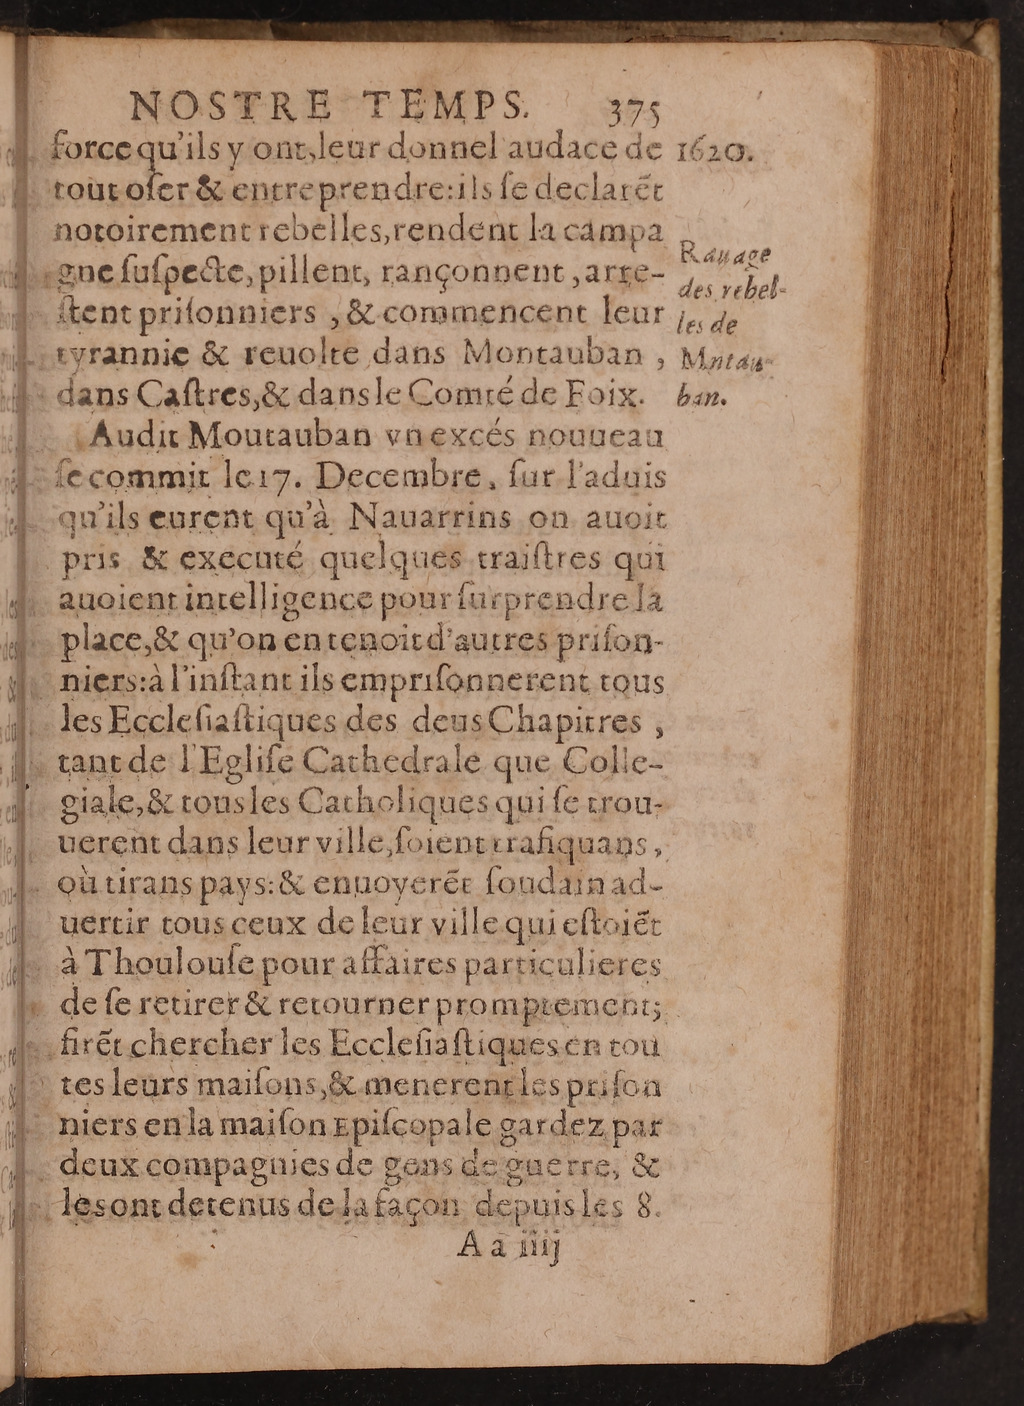 NOSTRE TEMPS. 375
force qu'ils y ont, leur donnel'audace de 1620.
tout oſer & entreprendre:ils ſe declarẽt
notoirement rebelles, rendent la campa
gne ſuſpecte, pillent, rançonnent, arre-
ſtent priſonniers, & commencent leur
tyrannie & reuolte dans Montauban,
dans Caſtres, & dans le Comté de Foix.
Rauage
des rebel-
les de
Mntau-
ban.
Audit Moutauban vn excés nouueau
ſe commit le 17. Decembre, ſur l'aduis
qu'ils eurent qu'à Nauarrins on auoit
pris & executé quelques traiſtres qui
auoient intelligence pour ſurprendre la
place, & qu'on en tenoit d'autres priſon-
niers:à l'inſtant ils empriſonnerent tous
les Eccleſiaſtiques des deus Chapitres,
tant de l'Egliſe Cathedrale que Colle-
giale, & tous les Catholiques qui ſe trou-
uerent dans leur ville, ſoient trafiquans,
où tirans pays: & enuoyerẽt ſoudain ad-
uertir tous ceux de leur ville qui eſtoiẽt
à Thoulouſe pour affaires particulieres
de ſe retirer & retourner promptement;
firẽt chercher les Eccleſiaſtiques en tou
tes leurs maiſons, & menerent les priſon
niers en la maiſon Epiſcopale gardez par
deux compagnies de gens de guerre, &
les ont detenus de la façon depuis les 8.
A a iiij